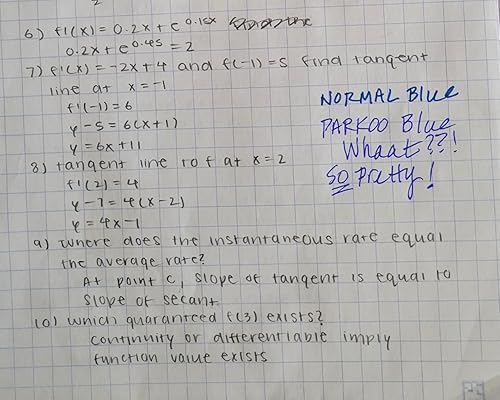 6) f'(x) = 0.2x + e^0.15x
0.2x + e^0.45 = 2
7) f'(x) = -2x + 4 and f(-1) = 5 find tangent
line at x = -1
f'(-1) = 6
y - 5 = 6(x+1)
y = 6x + 11
8) tangent line to f at x = 2
f'(2) = 4
y - 7 = 4(x - 2)
y = 4x - 1
9) where does the instantaneous rate equal
the average rate?
At point C, slope of tangent is equal to
slope of secant
10) which guaranteed f(3) exists?
continuity or differentiable imply
function value exists
NORMAL BLUE
PARKOO Blue
Whaat??!
SO pretty!